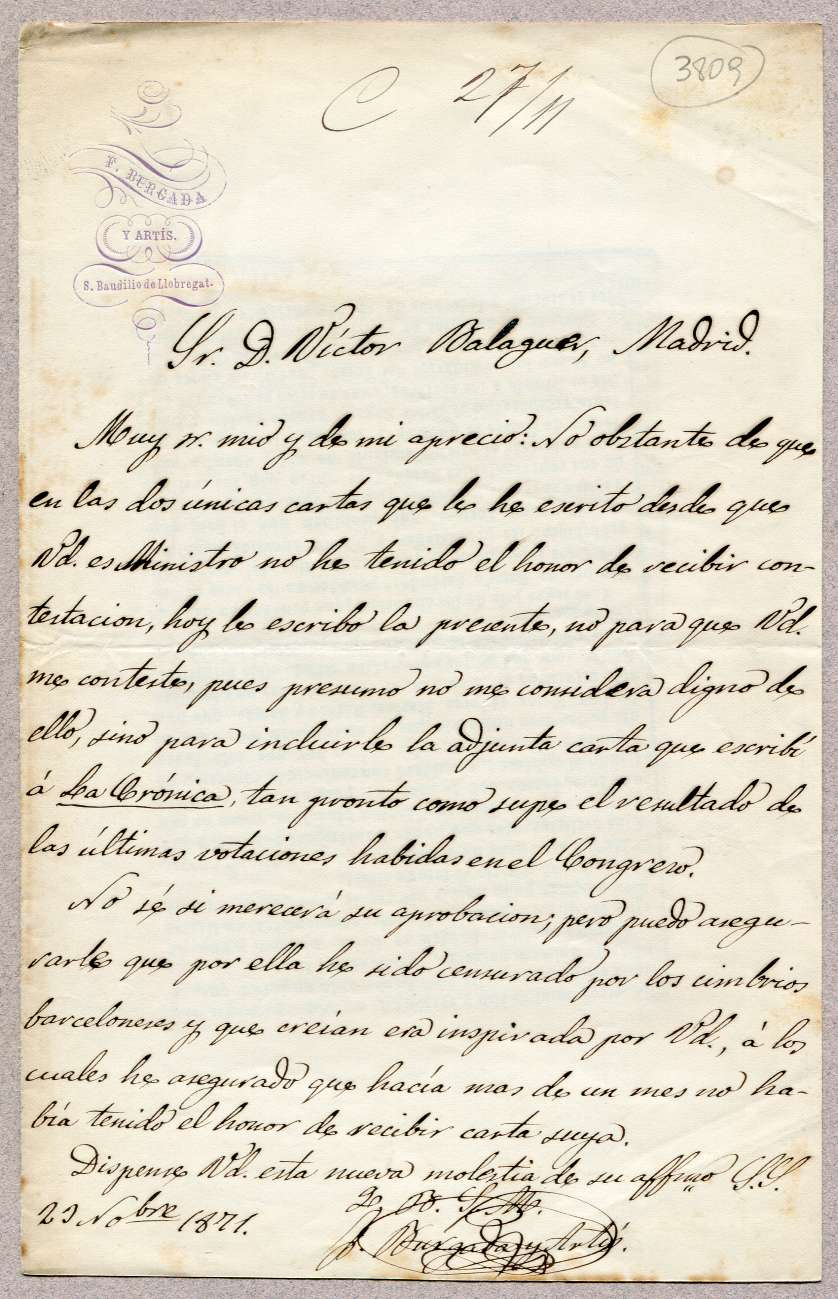 3809
C 27/11
F. BURGADA
Y ARTÍS.
S. Baudilio de Llobregat.
Sr. D. Víctor Balaguer, Madrid.
Muy sr. mio y de mi aprecio: No obstante de que
en las dos únicas cartas que le he escrito desde que
Vd. es Ministro no he tenido el honor de recibir con-
testacion, hoy le escribo la presente, no para que Vd.
me conteste, pues presumo no me considera digno de
ello, sino para incluirle la adjunta carta que escribí
á La Crónica, tan pronto como supe el resultado de
las últimas votaciones habidas en el Congreso.
No sé si merecerá su aprobacion; pero puedo asegu-
rarle que por ella he sido censurado por los cimbrios
barceloneses y que creían era inspirada por Vd., á los
cuales he asegurado que hacía mas de un mes no ha-
bía tenido el honor de recibir carta suya.
Dispense Vd. esta nueva molestia de su affmo S.S.
Q. B. S. M.
23 Nobre 1871.
F. Burgada y Artís.